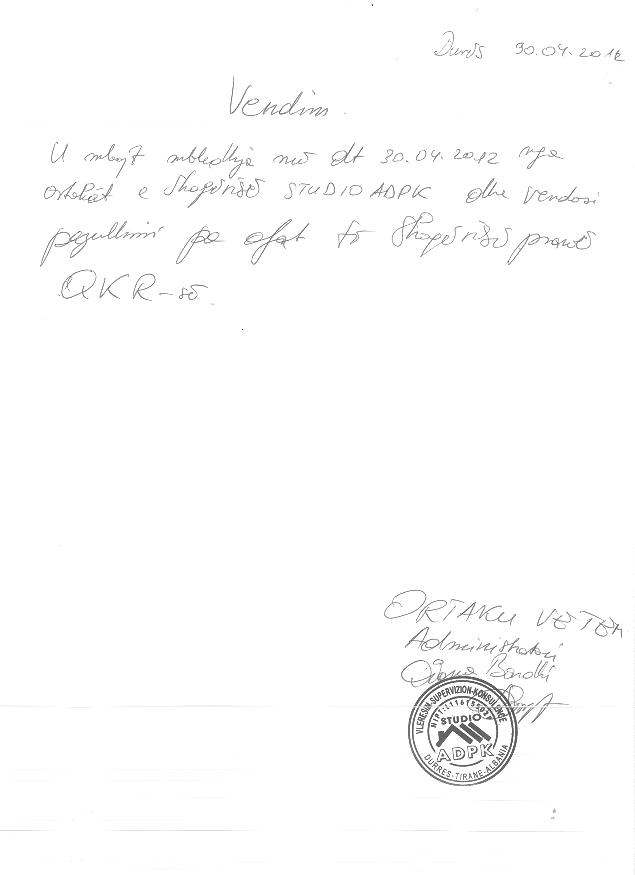 Durrës 30.04.2012
Vendim.
U mbajt mbledhja me dt 30.04.2012 nga
ortakët e Shoqërisë STUDIO ADPK dhe vendosi
çregjistrimi pa afat të Shoqërisë pranë
QKR-së.
ORTAKU VETËM
Administratori
VLERESIM-SUPERVIZION-KONSULENCE
STUDIO
ADPK
DURRES-TIRANE-ALBANIA